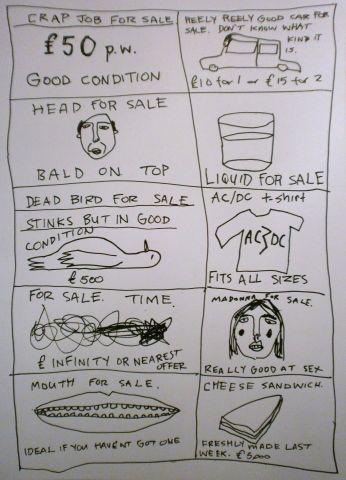 CRAP JOB FOR SALE
£50 p.w.
GOOD CONDITION
REELY REELY GOOD CAR FOR
SALE. DON'T KNOW WHAT
KIND IT
IS.
£10 for 1 or £15 for 2
HEAD FOR SALE
BALD ON TOP
LIQUID FOR SALE
DEAD BIRD FOR SALE
STINKS BUT IN GOOD
CONDITION
£500
AC/DC t-shirt
AC/DC
FITS ALL SIZES
FOR SALE. TIME.
£ INFINITY OR NEAREST
OFFER
MADONNA FOR SALE.
REALLY GOOD AT SEX
MOUTH FOR SALE.
IDEAL IF YOU HAVENT GOT ONE
CHEESE SANDWICH.
FRESHLY MADE LAST
WEEK. £5,000